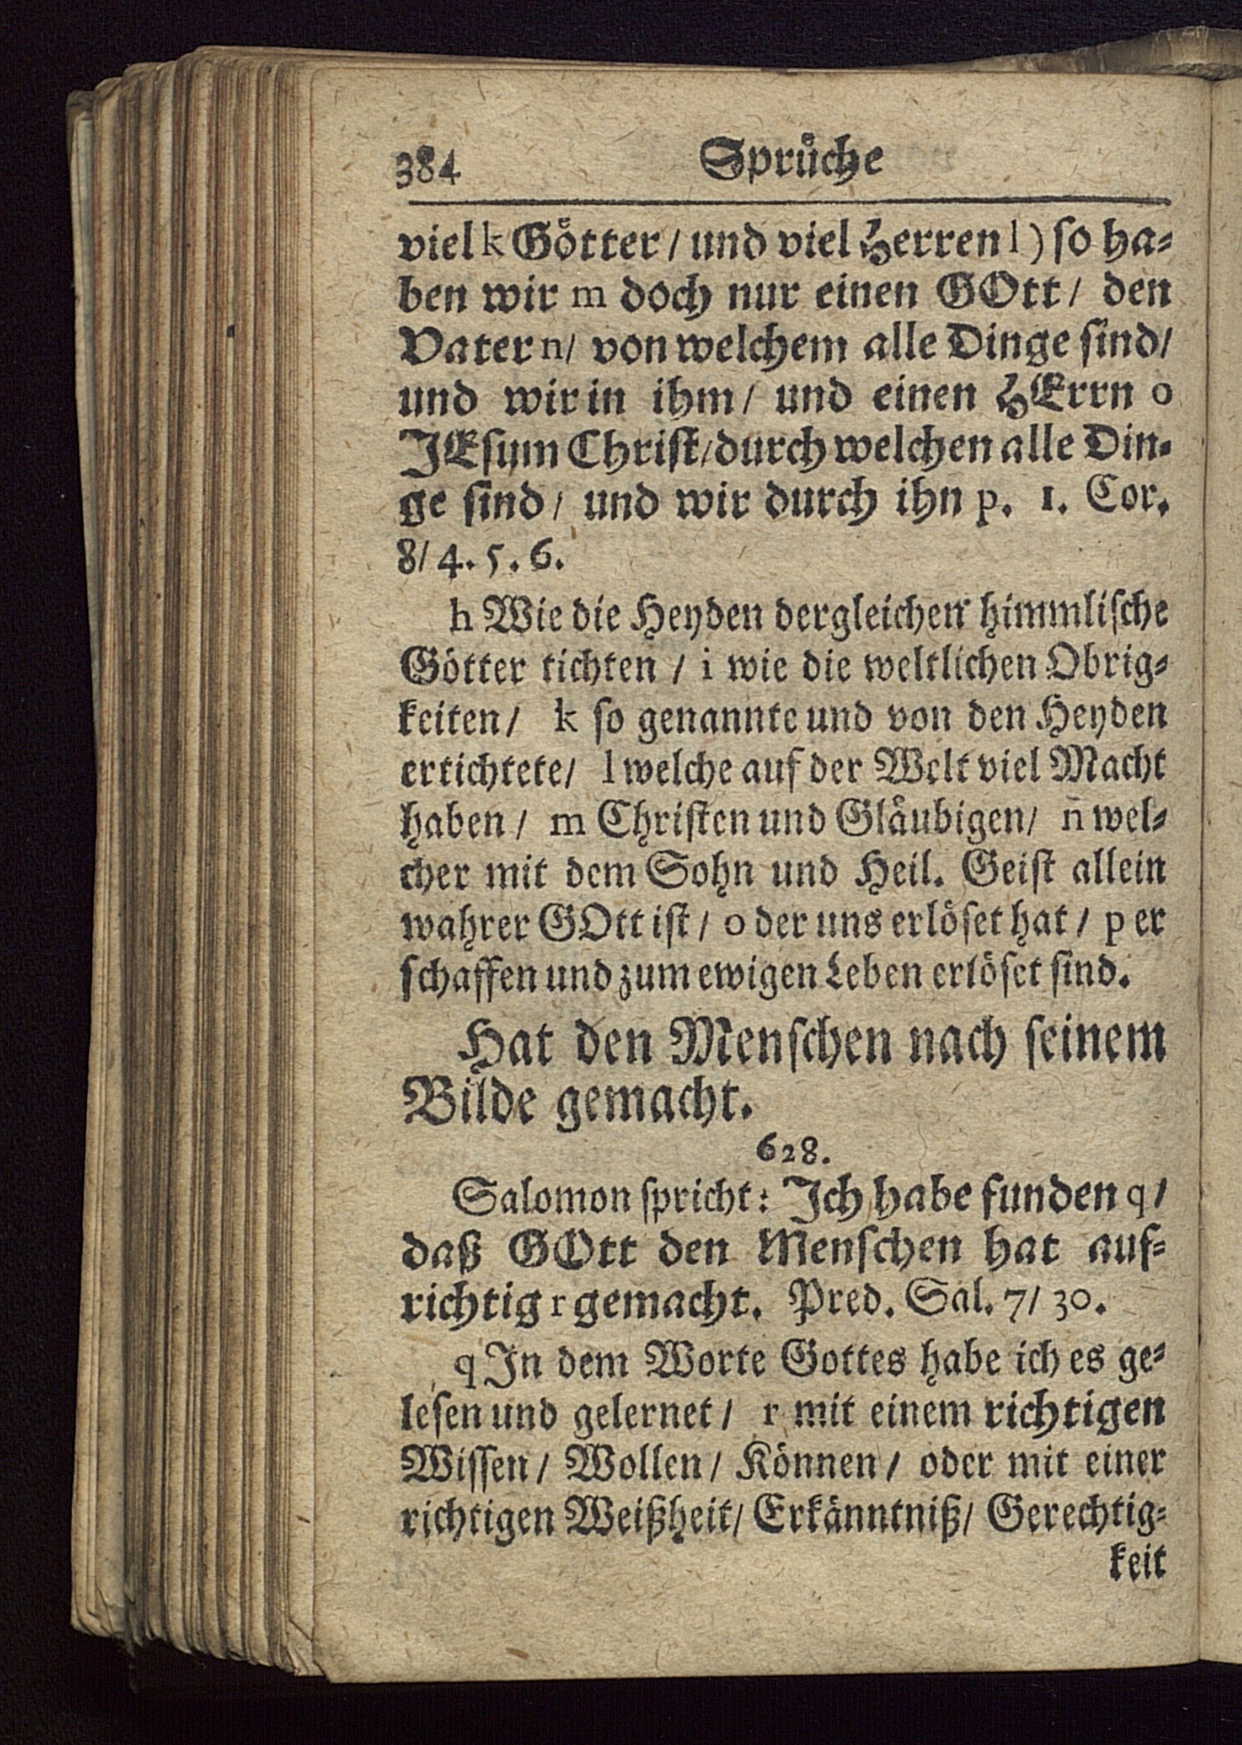 384 Sprüche
viel k Götter / und viel Herren l ) so ha-
ben wir m doch nur einen GOtt / den
Vater n / von welchem alle Dinge sind /
und wir in ihm / und einen HErrn o
JEsum Christ / durch welchen alle Din-
ge sind / und wir durch ihn p. 1. Cor.
8 / 4. 5. 6.
h Wie die Heyden dergleichen himmlische
Götter tichten / i wie die weltlichen Obrig-
keiten / k so genannte und von den Heyden
ertichtete / l welche auf der Welt viel Macht
haben / m Christen und Gläubigen / n̄ wel-
cher mit dem Sohn und Heil. Geist allein
wahrer GOtt ist / o der uns erlöset hat / p er
schaffen und zum ewigen Leben erlöset sind.
Hat den Menschen nach seinem
Bilde gemacht.
628.
Salomon spricht: Jch habe funden q /
daß GOtt den Menschen hat auf-
richtig r gemacht. Pred. Sal. 7 / 30.
q Jn dem Worte Gottes habe ich es ge-
lesen und gelernet / r mit einem richtigen
Wissen / Wollen / Können / oder mit einer
richtigen Weißheit / Erkänntniß / Gerechtig-
keit